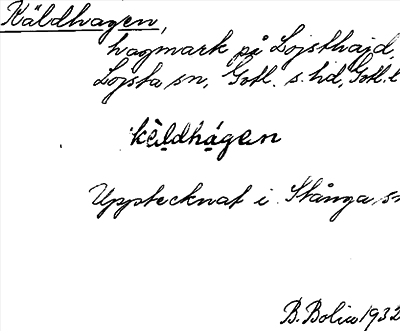 Käldhagen,
hagmark på Lojsthajd,
Lojsta sn, Gotl. s. hd, Gotl. l
kèldhágen
Upptecknat i Stånga sn
B. Bolin 1932